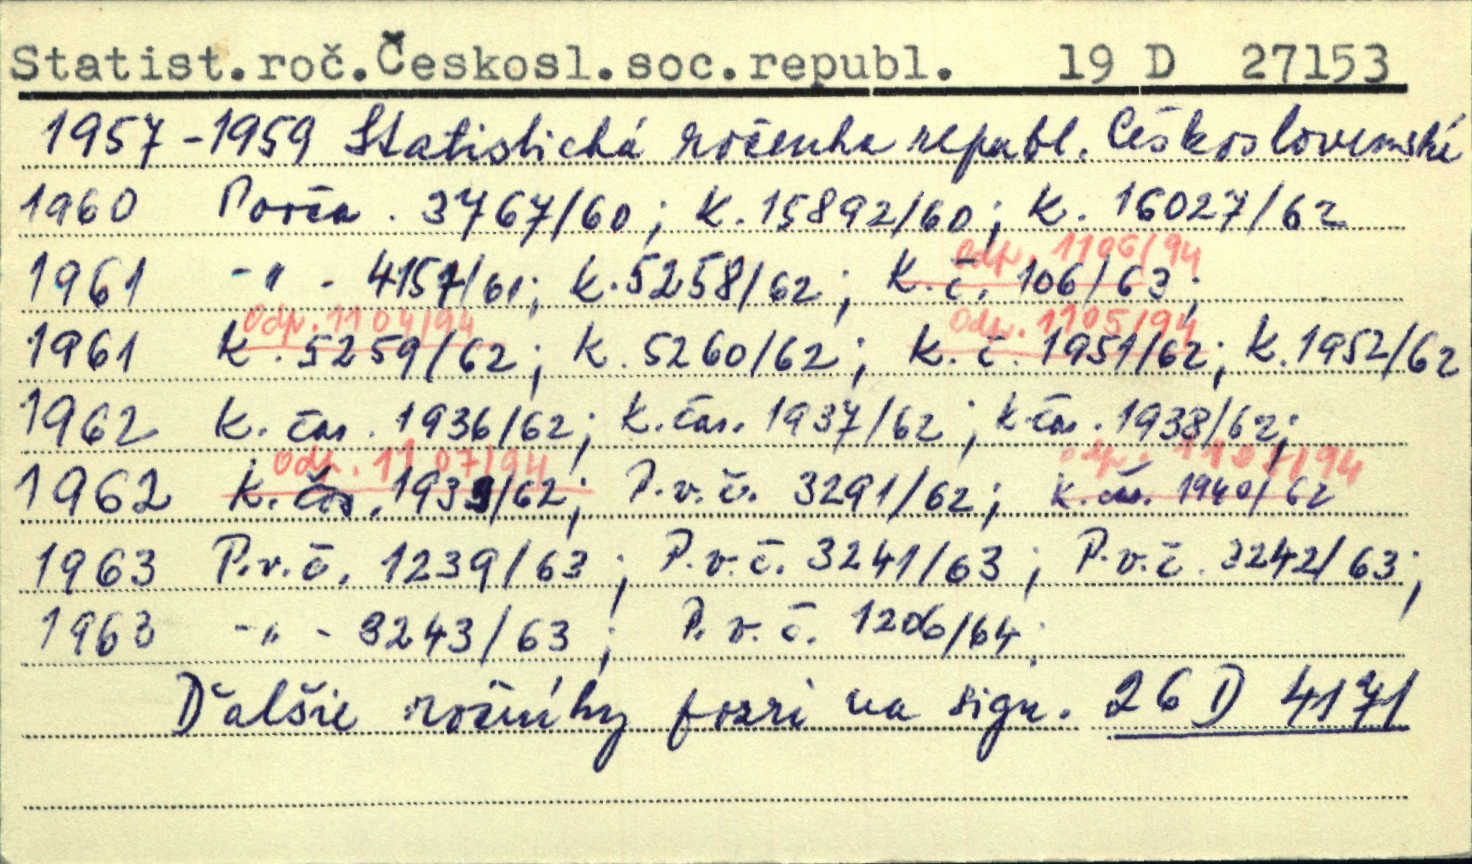 Statist.roč.Českosl.soc.republ. 19 D 27153
1957-1959 Statistická ročenka republ. Československé
1960 Porča. 3767/60; K. 15892/60; K. 16027/62
Odp. 1106/94
1961 -"- 4157/61; K. 5258/62; K. č. 106/63;
Odp. 1104/94 Odp. 1105/94
1961 K. 5259/62; K. 5260/62; K. č. 1951/62; K. 1952/62
1962 K. čas. 1936/62; K. čas. 1937/62; K čas. 1938/62;
Odp. 1107/94 Odp. 94
1962 K. čas. 1939/62; P.v.č. 3291/62; K. čas. 1940/62
1963 P.v.č. 1239/63; P.v.č. 3241/63; P.v.č. 3242/63;
1963 -"- 3243/63; P.v.č. 1206/64;
Ďalšie ročníky pozri na sign. 26 D 4171